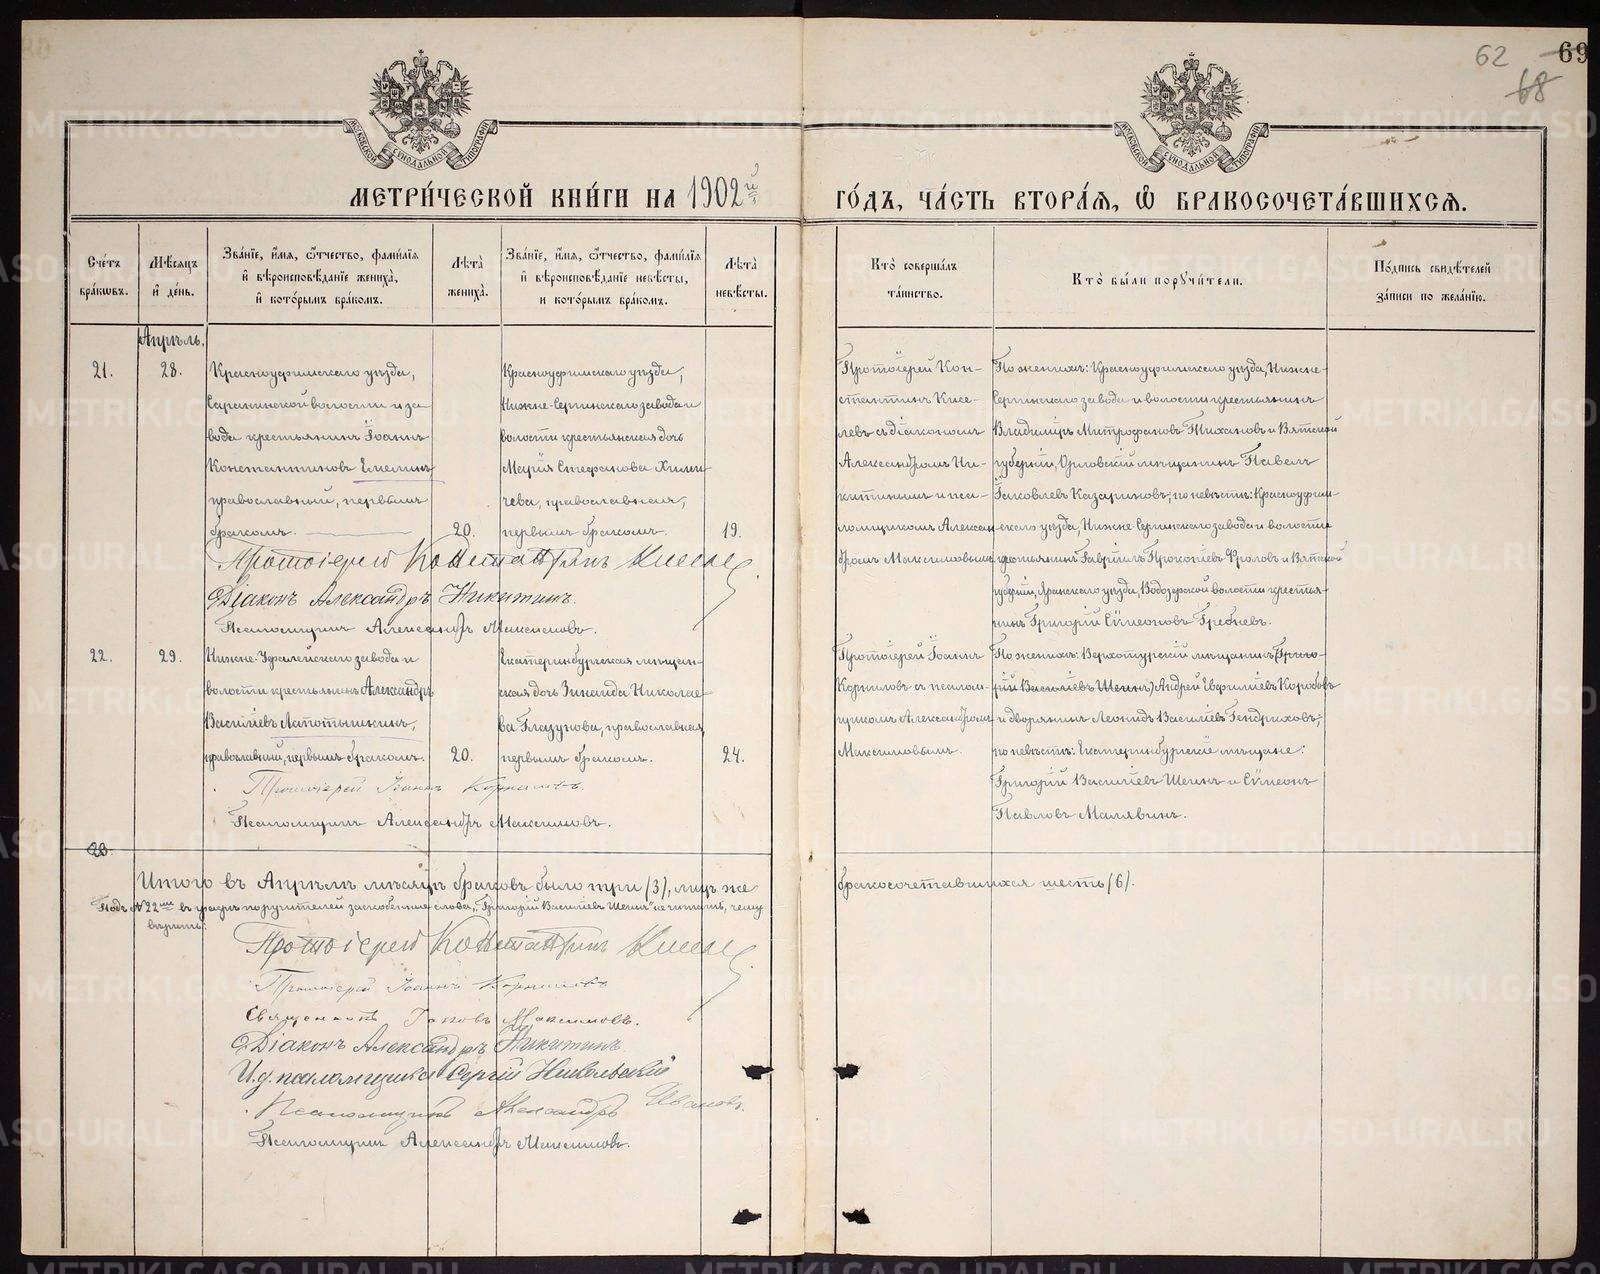 62 69
68
МОСКОВСКОЙ СѴНОДАЛЬНОЙ ТИПОГРАФІИ
МОСКОВСКОЙ СѴНОДАЛЬНОЙ ТИПОГРАФІИ
МЕТРИ́ЧЕСКОЙ КНИ́ГИ НА 1902й ГО́ДЪ, ЧА́СТЬ ВТОРА́Я, Ѡ БРАКОСОЧЕТА́ВШИХСЯ.
Сче́тъ бра́кѡвъ.
Мѣ́сяцъ и де́нь.
Зва́нїе, и́мя, ѻ҆́тчество, фами́лїя и вѣроисповѣ́данїе жениха̀, и кото́рымъ бра́комъ.
Лѣта̀ жениха̀.
Зва́нїе, и́мя, ѻ҆́тчество, фами́лїя и вѣроисповѣ́данїе невѣ́сты, и кото́рымъ бра́комъ.
Лѣта̀ невѣ́сты.
Кто̀ соверша́лъ та́инство.
Кто̀ бы́ли порꙋчи́тели.
По́дпись свидѣ́телей за́писи по жела́нїю.
Апрѣль.
21. 28.
Красноуфимскаго уѣзда,
Саранинской волости и за-
вода крестьянинъ Іоаннъ
Константиновъ Емелинъ
православный, первымъ
бракомъ.
20.
Красноуфимскаго уѣзда,
Нижне-Сергинскаго завода и
волости крестьянская дочь
Марія Стефанова Хими-
чева, православная,
первымъ бракомъ.
19.
Протоіерей Кон-
стантинъ Кисе-
левъ съ діакономъ
Александромъ Ни-
китинымъ и пса-
ломщикомъ Алексан-
дромъ Максимовымъ
По женихѣ: Красноуфимскаго уѣзда, Нижне-
Сергинскаго завода и волости крестьянинъ
Владиміръ Митрофановъ Тихановъ и Вятской
губерніи, Орловскій мѣщанинъ Павелъ
Іаковлевъ Казариновъ; по невѣстѣ: Красноуфим-
скаго уѣзда, Нижне-Сергинскаго завода и волости
крестьянинъ Гавріилъ Прокопіевъ Фроловъ и Вятской
губерніи, Яранскаго уѣзда, Водозерской волости крестья-
нинъ Григорій Сѵмеоновъ Гребневъ.
Протоіерей Константинъ Киселевъ
Діаконъ Александръ Никитинъ.
Псаломщикъ Александръ Максимовъ.
22. 29.
Нижне-Уфалейскаго завода и
волости крестьянинъ Александръ
Василіевъ Лапотышкинъ,
православный, первымъ бракомъ.
20.
Екатеринбургская мѣщан-
ская дочь Зинаида Николае-
ва Глазунова, православная
первымъ бракомъ.
24.
Протоіерей Іоаннъ
Корниловъ съ псалом-
щикомъ Александромъ
Максимовымъ.
По женихѣ: Верхотурскій мѣщанинъ (Григо-
рій Василіевъ Шеинъ) Андрей Евфиміевъ Коробовъ
и дворянинъ Леонидъ Василіевъ Гендриховъ;
по невѣстѣ: Екатеринбургскіе мѣщане:
Григорій Василіевъ Шеинъ и Сѵмеонъ
Павловъ Малявинъ.
Протоіерей Іоаннъ Корниловъ.
Псаломщикъ Александръ Максимовъ.
Итого въ Апрѣлѣ мѣсяцѣ браковъ было три (3), лицъ же бракосочетавшихся шесть (6).
Подъ № 22мъ въ графѣ поручителей заскобенные слова: „Григорій Василіевъ Шеинъ" не читать, чему
вѣрить:
Протоіерей Константинъ Киселевъ
Протоіерей Іоаннъ Корниловъ
Священникъ Іаковъ Максимовъ.
Діаконъ Александръ Никитинъ
И.д. псаломщика Сергій Никольскій
Псаломщикъ Александръ Ивановъ.
Псаломщикъ Александръ Максимовъ.
METRIKI.GASO-URAL.RU